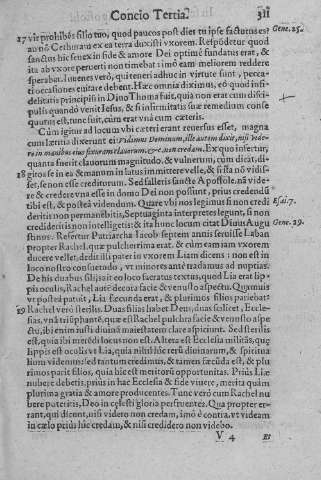 Concio Tertia. 311
17 vir prohibes filio tuo, quod paucos post dies tu ipse facturus es?
an nō Cethuram ex ea terra duxisti vxorem. Respōdetur quod
sanctus hic senex in fide & amore Dei optimè fundatus erat, &
ita ab vxore peruerti non timebat: imò eam meliorem reddere
sperabat. Iuuenes verò, qui teneri adhuc in virtute sunt, pecca-
ti occasiones euitare debent. Hæc omnia diximus, eò quod infi-
delitatis principiū in Dino Thoma fuit, quia non erat cum disci-
pulis quando venit Iesus, & si infirmitatis suæ remedium conse
quutus est, tunc fuit, cùm erat vnà cum cæteris.
Cùm igitur ad locum vbi cæteri erant reuersus esset, magna
cum lætitia dixerunt ei: Vidimus Dominum, ille autem dixit, nisi vide-
ro in manibus eius fixuram clauorum, &c. non credam. Ex quo infertur,
quanta fuerit clauorum magnitudo, & vulnerum, cùm dicat, di-
18 gitos se in ea & manum in latus immittere velle, & si sta nō vidis-
set, se non esse crediturum. Sed falleris sancte Apostole, nā vide
re & credere vna esse in domo Dei non possunt, prius credendū
tibi est, & posteà videndum. Quare vbi nos legimus si non credi
deritis non permanebitis, Septuaginta interpretes legunt, si non
credideritis non intelligetis: & ita hunc locum citat Diuus Augu
stinus. Refertur Patriarcha Iacob septem annis seruisse Laban
propter Rachel, quæ pulcherrima erat, & cùm eam iam vxorem
ducere vellet, dedit illi pater in vxorem Liam dicens: non est in
loco nostro consuetudo, vt minores antè tradamus ad nuptias.
De his duabus filijs sit eo loco sacratus textus, quod Lia erat lip-
pis oculis, Rachel autē decora facie & venusto aspectu. Quamuis
vt posteà patuit, Lia fœcunda erat, & plurimos filios pariebat:
19 Rachel verò sterilis. Duas filias habet Deus, duas scilicet, Eccle-
sias, vnā triūphantē, quæ est Rachel pulchra facie & venusto aspe
ctu, ibi enim iusti diuinā maiestatem clarè aspiciunt. Sed sterilis
est, quia ibi mercedi locus non est. Altera est Ecclesia militās, quę
lippis est oculis vt Lia, quia nihil hîc rerū diuinarum, & spiritua
lium videmus, sed tantùm credimus, & tamen fœcūda est, & plu
rimos parit filios, quia hîc est meritorū opportunitas. Prius Liæ
nubere debetis, prius in hac Ecclesia & fide viuere, merita quàm
plurima gratia & amore producentes. Tunc verò cum Rachel nu
bere poteritis, Deo in cœlesti gloria perfruentes. Qua propter er-
rant, qui dicunt, nisi videro non credam, imò è contrà, vt videam
in cælo priùs hîc credam, & nisi credidero non videbo.
V 4 Et
Gene. 25.
Esai. 7.
Gene. 29.